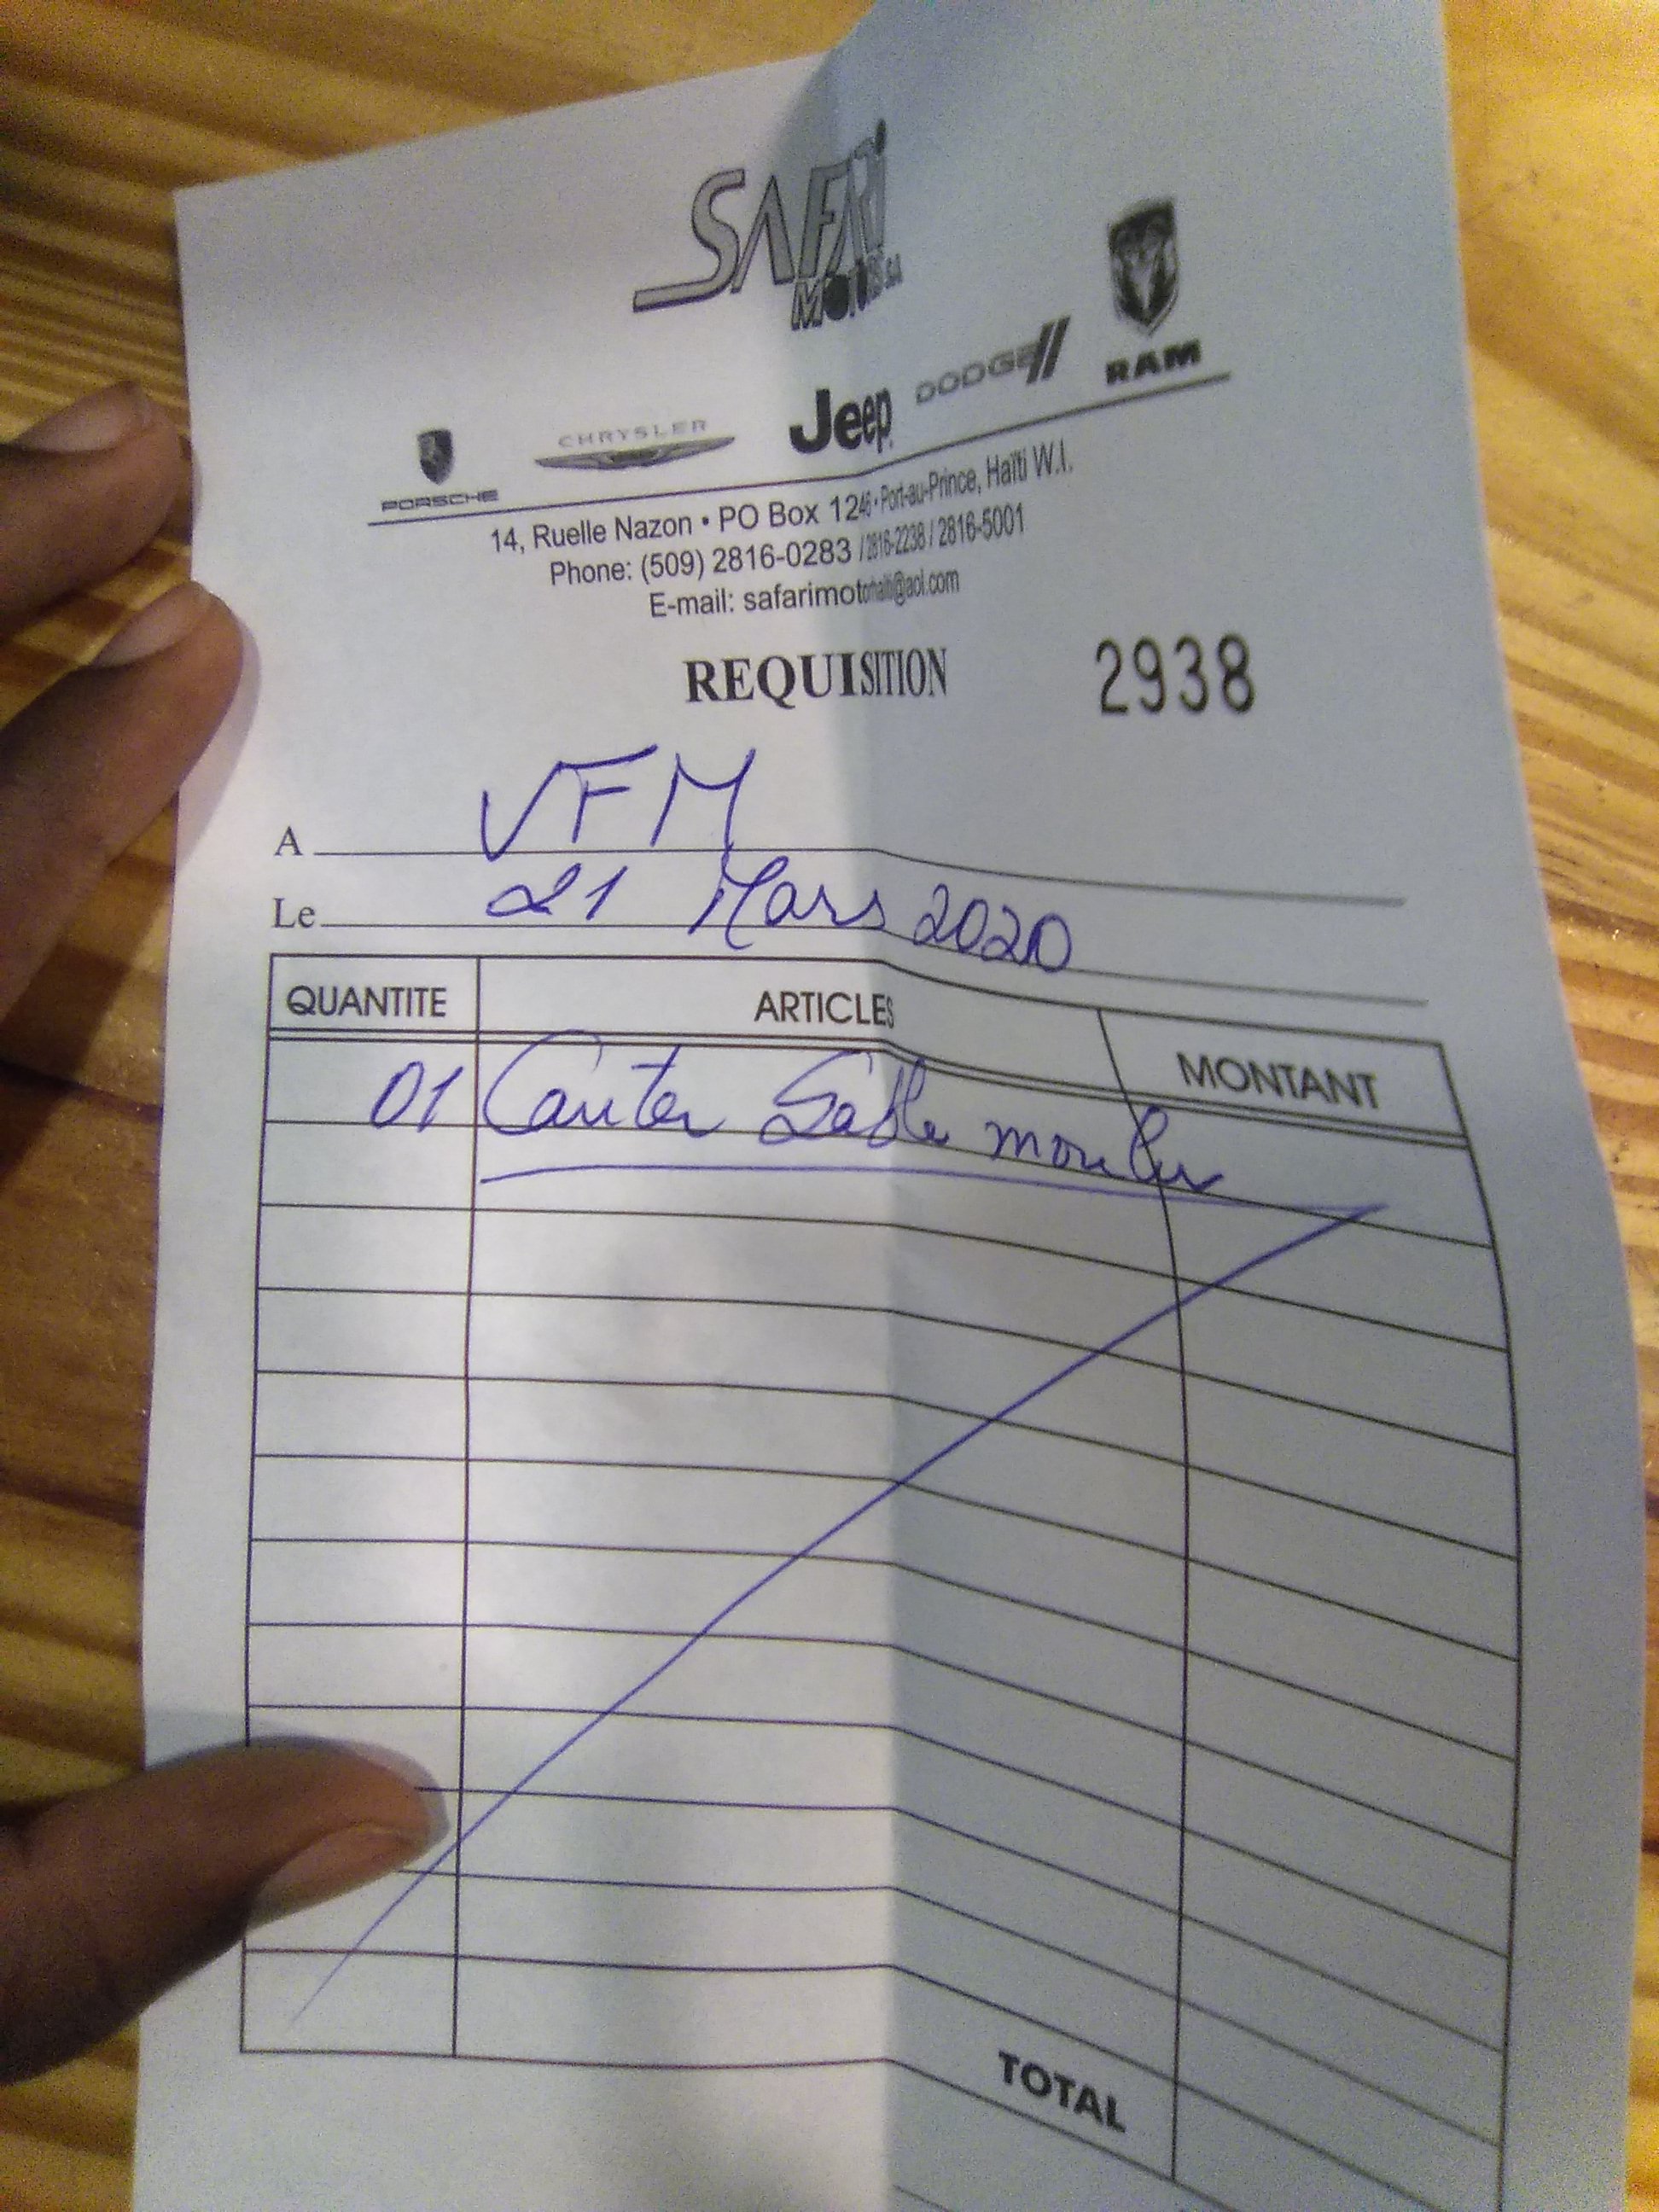 SAFARI
MOTORS S.A
PORSCHE CHRYSLER Jeep DODGE RAM
14, Ruelle Nazon • PO Box 1246 • Port-au-Prince, Haïti W.I.
Phone: (509) 2816-0283 / 2816-2238 / 2816-5001
E-mail: safarimotorhaiti@aol.com
REQUISITION 2938
A VFM
Le 21 Mars 2020
QUANTITE ARTICLES MONTANT
01 Canter Sable
TOTAL